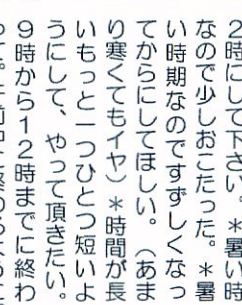 2時にして下さい。＊暑い時
なので少しおこたった。＊暑
い時期なのですずしくなっ
てからにしてほしい。（あま
り寒くてもイヤ）＊時間が長
いもっと一つひとつ短いよ
うにして、やって頂きたい。
9時から12時までに終わ